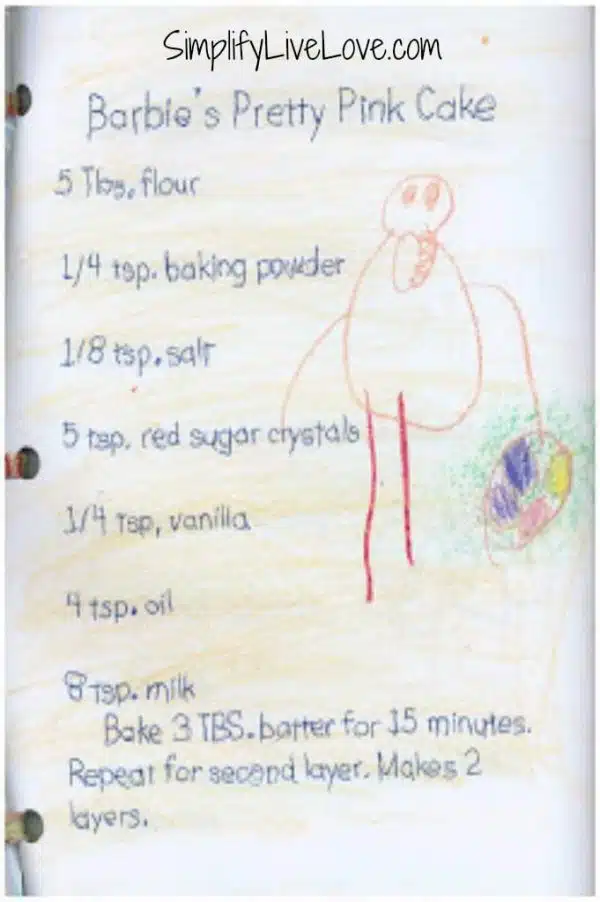 SimplifyLiveLove.com
Barbie's Pretty Pink Cake
5 Tbs. flour
1/4 tsp. baking powder
1/8 tsp. salt
5 tsp. red sugar crystals
1/4 tsp, vanilla
4 tsp. oil
8 tsp. milk
Bake 3 TBS. batter for 15 minutes.
Repeat for second layer. Makes 2
layers.